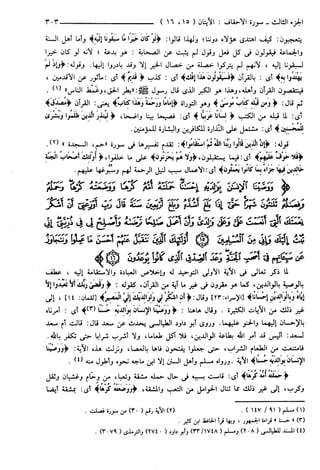 الجزء الثالث - سورة الأحقاف : الآيتان (١٥ ، ١٦) ٣٠٣
يتعجبون: كيف اهتدى هؤلاء دوننا؛ ولهذا قالوا: ﴿لو كان خيرا ما سبقونا إليه﴾ وأما أهل السنة
والجماعة فيقولون في كل فعل وقول لم يثبت عن الصحابة : هو بدعة ؛ لأنه لو كان خيرا
لسبقونا إليه ، لأنهم لم يتركوا خصلة من خصال الخير إلا وقد بادروا إليها. وقوله: ﴿وإذ لم
يهتدوا به﴾ أي : بالقرآن ﴿فسيقولون هذا إفك﴾ أي : كذب ﴿قديم﴾ أي : مأثور عن الأقدمين ،
فينتقصون القرآن وأهله، وهذا هو الكبر الذي قال رسول ﷺ: «بطر الحق، وغمط الناس» (١) .
ثم قال: ﴿ومن قبله كتاب موسى﴾ وهو التوراة ﴿إماما ورحمة وهذا كتاب﴾ يعني: القرآن ﴿مصدق﴾
أي: لما قبله من الكتب ﴿لسانا عربيا﴾ أي: فصيحا بينا واضحا، ﴿لينذر الذين ظلموا وبشرى
للمحسنين﴾ أي: مشتمل على النذارة للكافرين والبشارة للمؤمنين.
قوله: ﴿إن الذين قالوا ربنا الله ثم استقاموا﴾: تقدم تفسيرها في سورة «حم، السجدة» (٢).
﴿فلا خوف عليهم﴾ أي: فيما يستقبلون، ﴿ولا هم يحزنون﴾ على ما خلفوا، ﴿أولئك أصحاب الجنة
خالدين فيها جزاء بما كانوا يعملون﴾ أي: الأعمال سبب لنيل الرحمة لهم وسبوغها عليهم.
﴿ووصينا الإنسان بوالديه إحسانا حملته أمه كرها ووضعته كرها وحمله
وفصاله ثلاثون شهرا حتى إذا بلغ أشده وبلغ أربعين سنة قال رب أوزعني أن أشكر
نعمتك التي أنعمت علي وعلى والدي وأن أعمل صالحا ترضاه وأصلح لي في ذريتي إني
تبت إليك وإني من المسلمين (١٥) أولئك الذين نتقبل عنهم أحسن ما عملوا ونتجاوز
عن سيئاتهم في أصحاب الجنة وعد الصدق الذي كانوا يوعدون (١٦)﴾
لما ذكر تعالى في الآية الأولى التوحيد له وإخلاص العبادة والاستقامة إليه ، عطف
بالوصية بالوالدين، كما هو مقرون في غير ما آية من القرآن، كقوله : ﴿وقضى ربك ألا تعبدوا إلا
إياه وبالوالدين إحسانا﴾ [الإسراء:٢٣] وقال: ﴿أن اشكر لي ولوالديك إلي المصير﴾ [لقمان: ١٤] ، إلى
غير ذلك من الآيات الكثيرة . وقال هاهنا : ﴿ووصينا الإنسان بوالديه حسنا﴾ (٣) أي : أمرناه
بالإحسان إليهما والحنو عليهما. وروى أبو داود الطيالسي يحدث عن سعد قال: قالت أم سعد
لسعد: أليس قد أمر الله بطاعة الوالدين، فلا آكل طعاما، ولا أشرب شرابا حتى تكفر بالله.
فامتنعت من الطعام والشراب، حتى جعلوا يفتحون فاها بالعصا، ونزلت هذه الآية: ﴿ووصينا
الإنسان بوالديه حسنا﴾ الآية . ورواه مسلم وأهل السنن إلا ابن ماجه نحوه، وأطول منه (٤) .
﴿حملته أمه كرها﴾ أي: قاست بسببه في حال حمله مشقة وتعبا، من وحام وغشيان وثقل
وكرب، إلى غير ذلك مما تنال الحوامل من التعب والمشقة، ﴿ووضعته كرها﴾ أي: بمشقة أيضا
(١) مسلم (٩١ / ١٤٧) . (٢) الآية رقم (٣٠) من سورة فصلت .
(٣) « حسنا » قراءة الجمهور ، وبها قرأ الحافظ ابن كثير .
(٤) المسند للطيالسي (٢٠٨) ومسلم (٣٣/١٧٤٨) وأبو داود (٢٧٤٠) والترمذي (٣٠٧٩) .